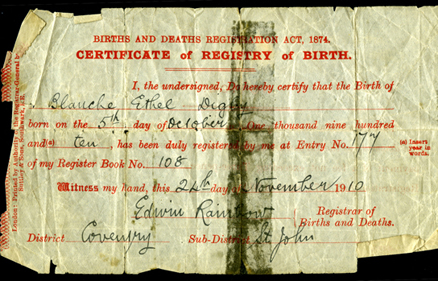 BIRTHS AND DEATHS REGISTRATION ACT, 1874.
CERTIFICATE OF REGISTRY OF BIRTH.
I, the undersigned, Do hereby certify that the Birth of
Blanche Ethel Digby
born on the 5th day of October One thousand nine hundred
and(a) ten, has been duly registered by me at Entry No. 177
(a) Insert year in words.
of my Register Book No. 108
Witness my hand, this 24th day of November 1910
Edwin Rainbow Registrar of
Births and Deaths.
District Coventry Sub-District St John
London: Printed by Authority of the Registrar General by